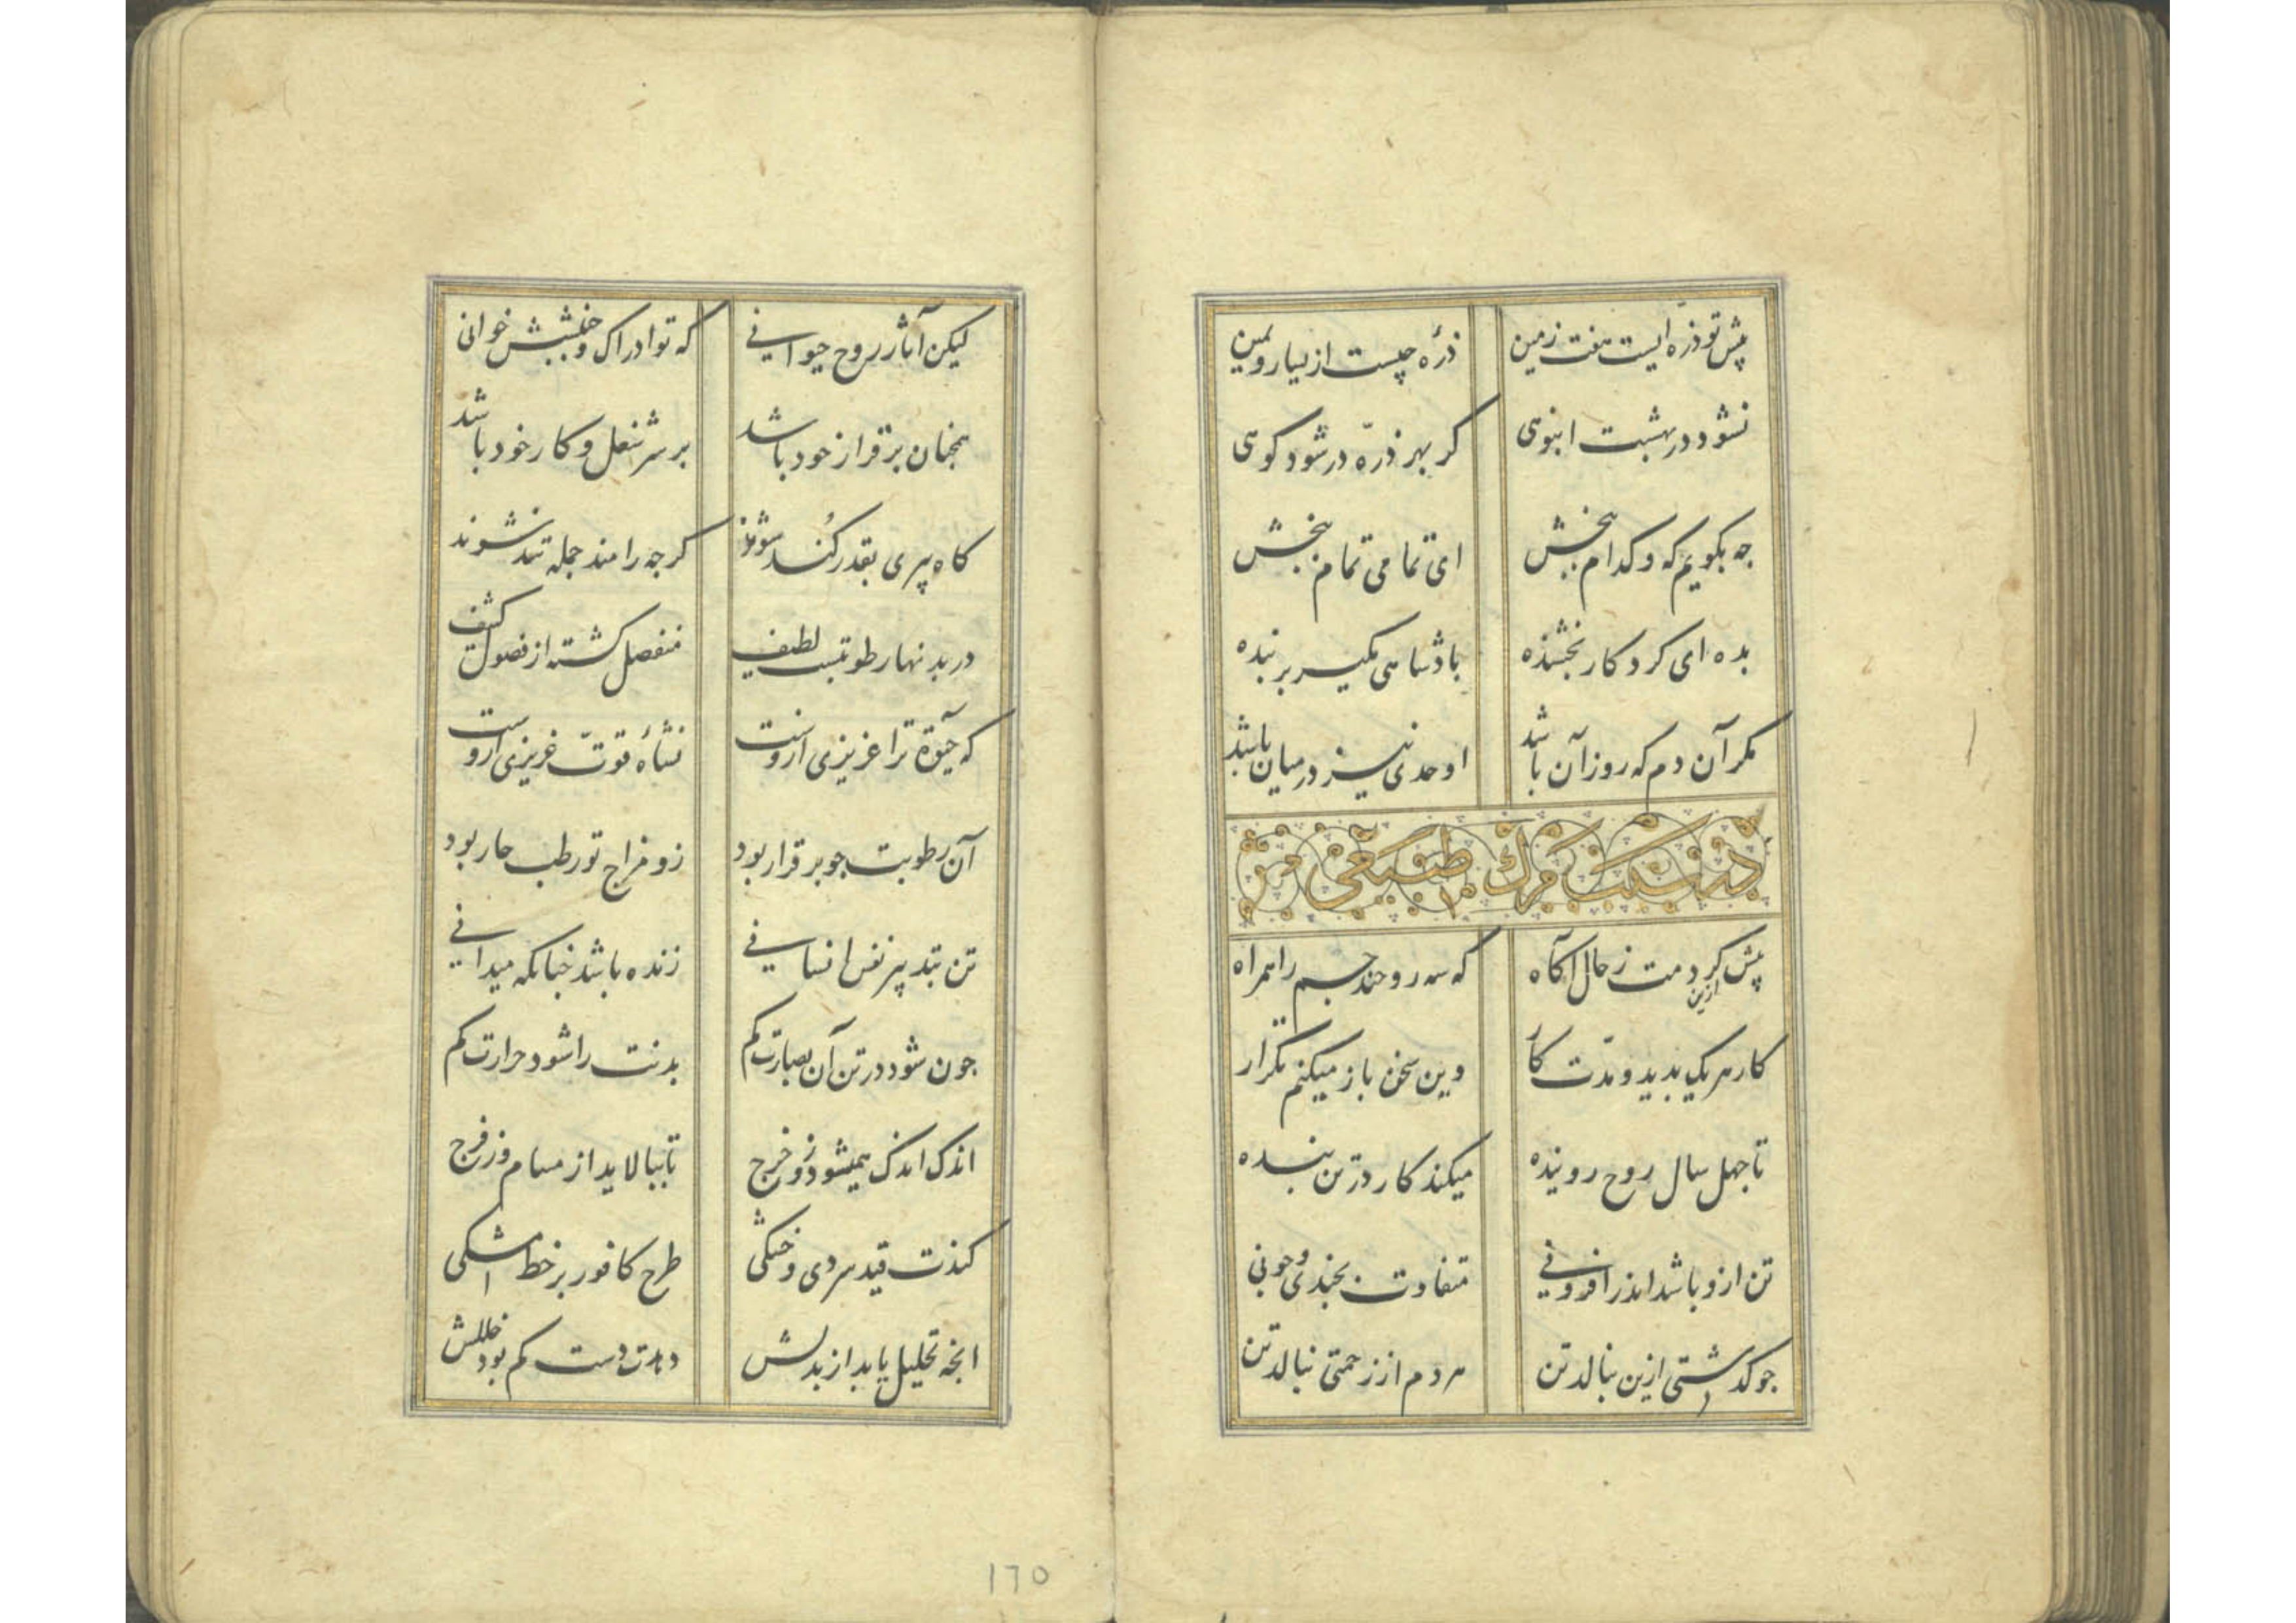 پیش تو ذرّه ایست هفت زمین ذرّه چیست از یسار و یمین
نشود در بهشت انبوهی کر بهر ذرّه در شود کوهی
جه بکویم که و کدام ببخش ای تمامی تمام ببخش
بده ای کردکار بخشنده پادشاهی مکیر بر بنده
مکر آن دم که روز آن باشد اوحدی نیز در میان باشد
در سبب مرک طبیعی
پیش ازین کردمت ز حال آکاه که سه روحند جسم را همراه
کار هر یک بدید و مدّت کار وین سخن باز میکنم تکرار
تا جهل سال روح روینده میکند کار در تن بنده
تن ازو باشد اندر افزونی متفاوت بجندی و جونی
جو کذشتی ازین نبالد تن هر دم از زحمتی بنالد تن
لیکن آثار روح حیوانی که تو ادراک و جنبشش خوانی
همجنان برقرار خود باشد بر سر شغل و کار خود باشد
کاه پیری بقدر کُند شوند کرجه رامند جمله تند نشوند
در بدنها رطوبتیست لطیف منفصل کشته از فصول کثیف
که حیوة ترا عزیزی ازوست نشأه قوتّ غریزی ازوست
آن رطوبت جو برقرار بود زو مزاج تو رطب حار بود
تن بتدبیر نفس انسانی زنده باشد جنانکه میدانی
جون شود در تن آن بصارت کم بدنت را شود حرارت کم
اندک اندک همیشود زو خرج تا ببالاید از مسام وز فرج
کندت قید سردی و خشکی طرح کافور بر خط مشکی
انجه تحلیل یابد از بدلش دهدت دست کم بود خللش
١٦٥